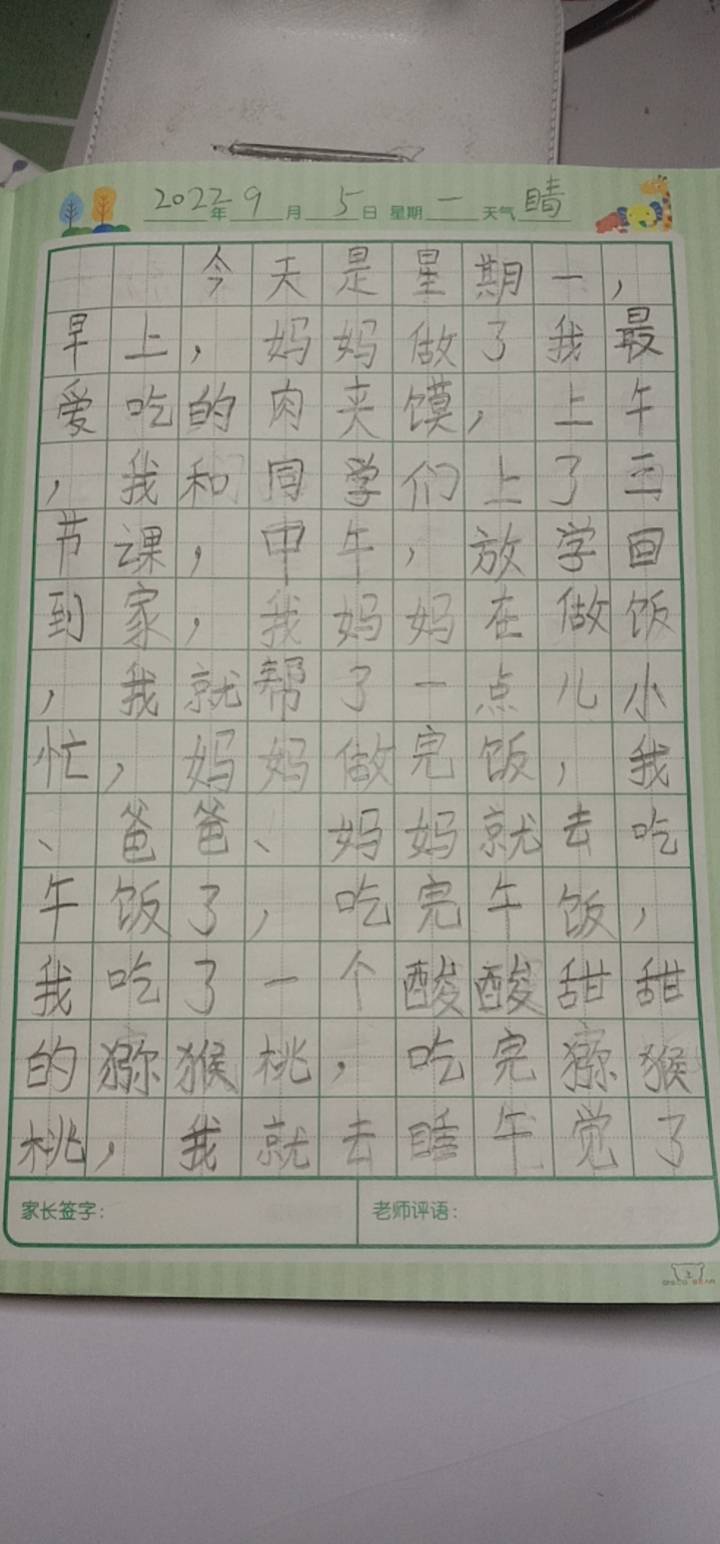 2022年9月5日 星期一 天气晴
今天是星期一，
早上，妈妈做了我最
爱吃的肉夹馍，上午
，我和同学们上了三
节课，中午，放学回
到家，我妈妈在做饭
，我就帮了一点儿小
忙，妈妈做完饭，我
、爸爸、妈妈就去吃
午饭了，吃完午饭，
我吃了一个酸酸甜甜
的猕猴桃，吃完猕猴
桃，我就去睡午觉了
家长签字： 老师评语：